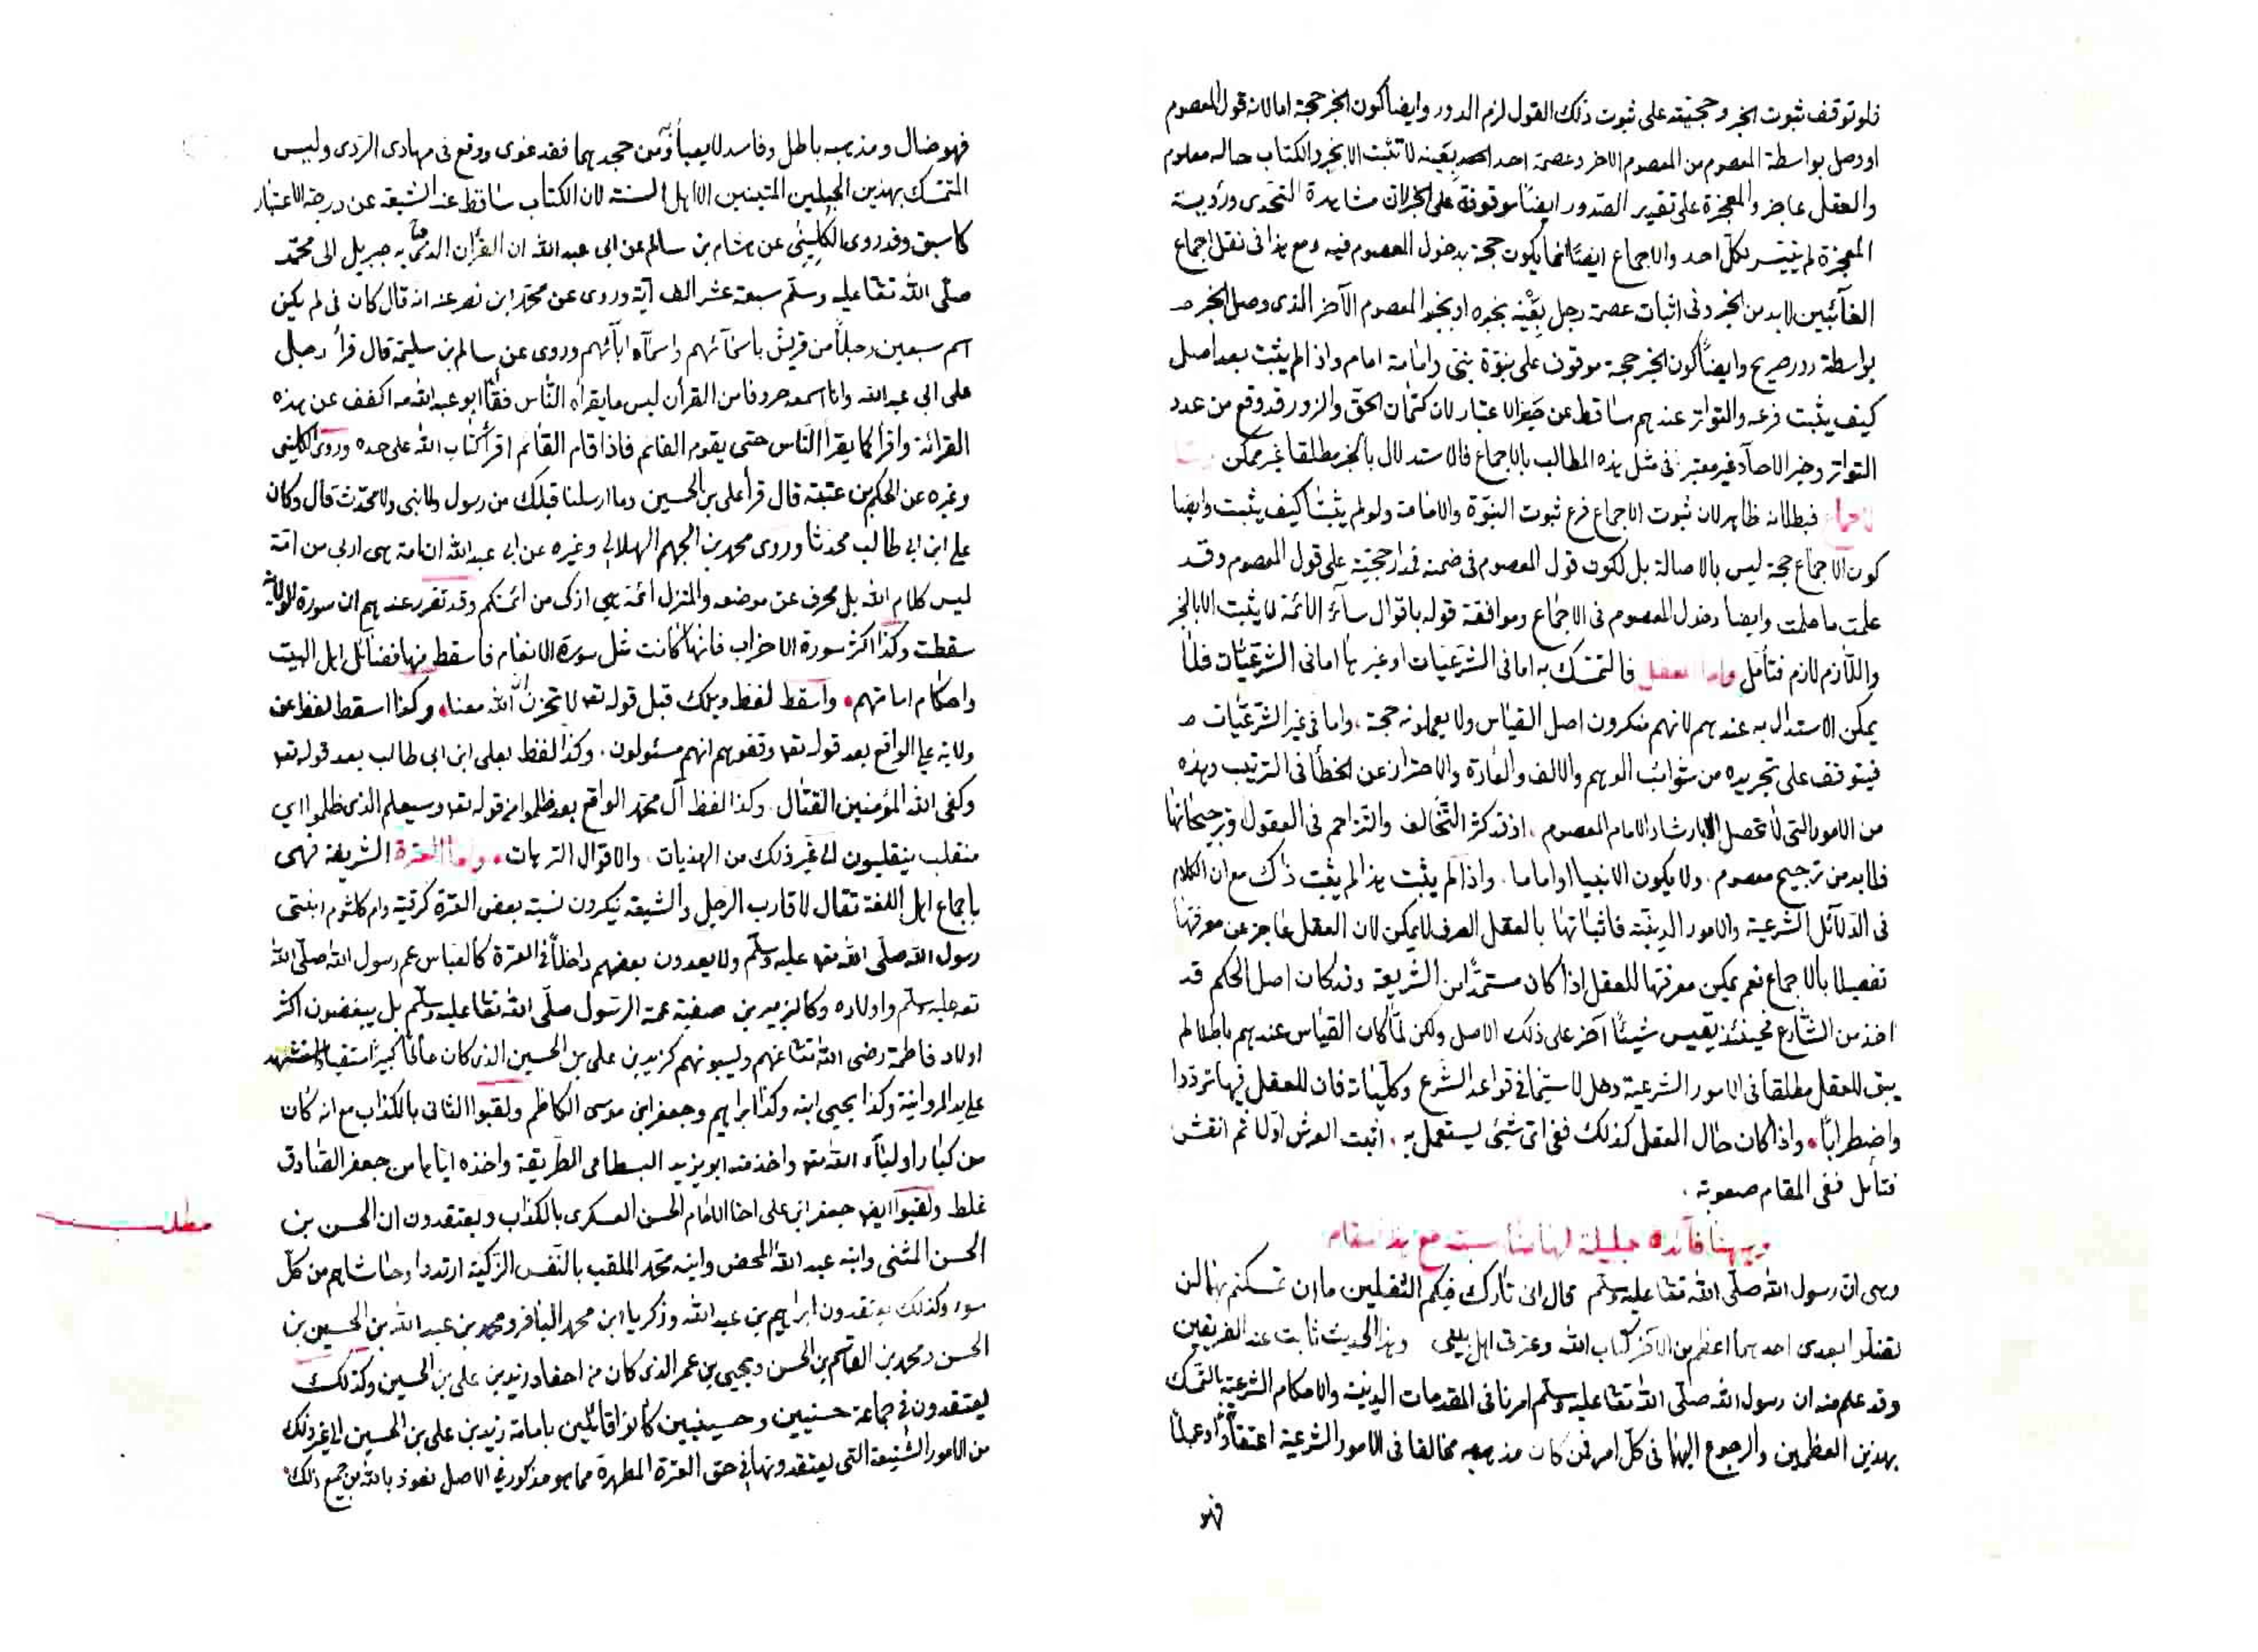 فلو توقف ثبوت الخبر وحجيته على ثبوت ذلك القول لزم الدور وايضا كون الخبر حجة اما لانه قول المعصوم
او وصل بواسطة المعصوم من المعصوم الاخر وعصمة احد بعينه لا تثبت الا بخبر والكتاب حاله معلوم
والعقل عاجز والمعجزة على تقدير الصدور ايضا موقوفة على الخبر لان مشاهدة التحدى ورؤية
المعجزة لم يتيسر لكل احد والاجماع ايضا انما يكون حجة بدخول المعصوم فيه ومع هذا فى نقل اجماع
الغائبين لابد من الخبر وفى اثبات عصمة رجل بعينه بخبره او بخبر المعصوم الآخر الذى وصل الخبر
بواسطة دور صريح وايضا كون الخبر حجة موقوف على نبوة نبى وامامة امام واذا لم يثبت بعد اصل
كيف يثبت فرعه والتواتر عندهم ساقط عن حيز الاعتبار لان كتمان الحق والزور قد وقع من عدد
التواتر وخبر الاحاد غير معتبر فى مثل هذه المطالب بالاجماع فالاستدلال بالخبر مطلقا غير ممكن
لاجماع فبطلانه ظاهر لان ثبوت الاجماع فرع ثبوت النبوة والامامة ولو لم يثبتا كيف يثبت وايضا
كون الاجماع حجة ليس بالاصالة بل لكون قول المعصوم فى ضمنه فمدار حجيته على قول المعصوم وقد
علمت ما علمت وايضا دخول المعصوم فى الاجماع وموافقة قوله باقوال سائر الائمة لا يثبت الا بالخبر
واللازم لازم فتأمل واما العقل فالتمسك به اما فى الشرعيات او غيرها اما فى الشرعيات فلا
يمكن الاستدلال به عندهم لانهم منكرون اصل القياس ولا يعملونه حجة واما فى غير الشرعيات
فيتوقف على تجريده من شوائب الوهم والالف والعادة والاحتراز عن الخطأ فى الترتيب وهذه
من الامور التى لا تحصل الا بارشاد الامام المعصوم اذ قد كثر التخالف والتزاحم فى العقول وترجيحاتها
فلابد من ترجيح معصوم ولا يكون الا نبيا او اماما واذا لم يثبت هذا لم يثبت ذاك مع ان الكلام
فى الدلائل الشرعية والامور الدينية فاثباتها بالعقل الصرف لا يمكن لان العقل عاجز عن معرفتها
تفصيلا بالاجماع نعم يمكن معرفتها للعقل اذا كان مستمدا من الشريعة وقد كان اصل الحكم قد
اخذ من الشارع فحينئذ يقيس شيئا آخر على ذلك الاصل ولكن لما كان القياس عندهم باطلا لم
يبق للعقل مطلقا فى الامور الشرعية دخل لا سيما فى قواعد الشرع وكلياته فان للعقل فيها ترددا
واضطرابا واذا كان حال العقل كذلك ففى اى شئ يستعمل به اثبت العرش اولا ثم انقش
فتأمل ففى المقام صعوبة
وههنا فائدة جليلة لها مناسبة مع هذا المقام
وهى ان رسول الله صلى الله تعا عليه وسلم قال انى تارك فيكم الثقلين ما ان تمسكتم بهما لن
تضلوا بعدى احدهما اعظم من الآخر كتاب الله وعترتى اهل بيتى وهذا الحديث ثابت عند الفريقين
وقد علم منه ان رسول الله صلى الله تعا عليه وسلم امرنا فى المقدمات الدينية والاحكام الشرعية بالتمسك
بهذين العظيمين والرجوع اليهما فى كل امر فمن كان مذهبه مخالفا فى الامور الشرعية اعتقادا وعملا
فهو
فهو ضال ومذهبه باطل وفاسد لا يعبأ به ومن جحد بهما فقد غوى ووقع فى مهادى الردى وليس
المتمسك بهذين الحبلين المتينين الا اهل السنة لان الكتاب ساقط عند الشيعة عن درجة الاعتبار
كما سبق وقد روى الكلينى عن هشام بن سالم عن ابى عبد الله ان القرآن الذى جاء به جبريل الى محمد
صلى الله تعا عليه وسلم سبعة عشر الف آية وروى عن محمد ابن نصر عنه انه قال كان فى لم يكن
اسم سبعين رجلا من قريش باسمائهم واسماء ابائهم وروى عن سالم بن سليمة قال قرأ رجل
على ابى عبد الله وانا اسمعه حروفا من القرآن ليس ما يقرأه الناس فقال ابو عبد الله مه اكفف عن هذه
القرائة واقرأ كما يقرأ الناس حتى يقوم القائم فاذا قام القائم اقرأ كتاب الله على حده وروى الكلينى
وغيره عن الحكم بن عتبة قال قرأ على بن الحسين وما ارسلنا قبلك من رسول ولا نبى ولا محدث قال وكان
على ابن ابى طالب محدثا وروى محمد بن الجهم الهلالى وغيره عن ابى عبد الله ان امة هى اربى من امة
ليس كلام الله بل محرف عن موضعه والمنزل ائمة هى ازكى من ائمتكم وقد تقرر عندهم ان سورة الولاية
سقطت وكذا اكثر سورة الاحزاب فانها كانت مثل سورة الانعام فاسقط منها فضائل اهل البيت
واحكام امامتهم واسقط لفظ ويلك قبل قوله تعا لا تحزن ان الله معنا وكذا اسقط لفظ عن
ولاية على الواقع بعد قوله تعا وقفوهم انهم مسئولون وكذا لفظ بعلى ابن ابى طالب بعد قوله تعا
وكفى الله المؤمنين القتال وكذا لفظ آل محمد الواقع بعد ظلموا من قوله تعا وسيعلم الذى ظلموا اي
منقلب ينقلبون الى غير ذلك من الهذيات والاقوال الترهات واما العترة الشريفة فهى
باجماع اهل اللغة تقال لاقارب الرجل والشيعة ينكرون نسبة بعض العترة كرقية وام كلثوم ابنتى
رسول الله صلى الله تعا عليه وسلم ولا يعدون بعضهم داخلا فى العترة كالعباس عم رسول الله صلى الله
تعا عليه وسلم واولاده وكالزبير بن صفية عمة الرسول صلى الله تعا عليه وسلم بل يبغضون اكثر
اولاد فاطمة رضى الله تعا عنهم ويسبونهم كزيد بن على بن الحسين الذى كان عالما كبيرا متقيا واستشهد
على يد المروانية وكذا يحيى ابنه وكذا ابراهيم وجعفر ابن موسى الكاظم ولقبوا الثانى بالكذاب مع انه كان
من كبار اولياء الله تعا واخذ منه ابو يزيد البسطامى الطريقة واخذه اياها من جعفر الصادق
غلط ولقبوا ايضا جعفر ابن على اخا الامام الحسن العسكرى بالكذاب ويعتقدون ان الحسن بن
مطلب
الحسن المثنى وابنه عبد الله المحض وابنه محمد الملقب بالنفس الزكية ارتدوا وحاشاهم من كل
سوء وكذلك يعتقدون ابراهيم بن عبد الله وزكريا ابن محمد الباقر ومحمد بن عبد الله بن الحسين بن
الحسن ومحمد بن القاسم بن الحسن ويحيى بن عمر الذى كان من احفاد زيد بن على بن الحسين وكذلك
يعتقدون فى جماعة حسنيين وحسينيين كانوا قائلين بامامة زيد بن على بن الحسين الى غير ذلك
من الامور الشنيعة التى يعتقدونها فى حق العترة المطهرة مما هو مذكور فى الاصل نعوذ بالله من جميع ذلك